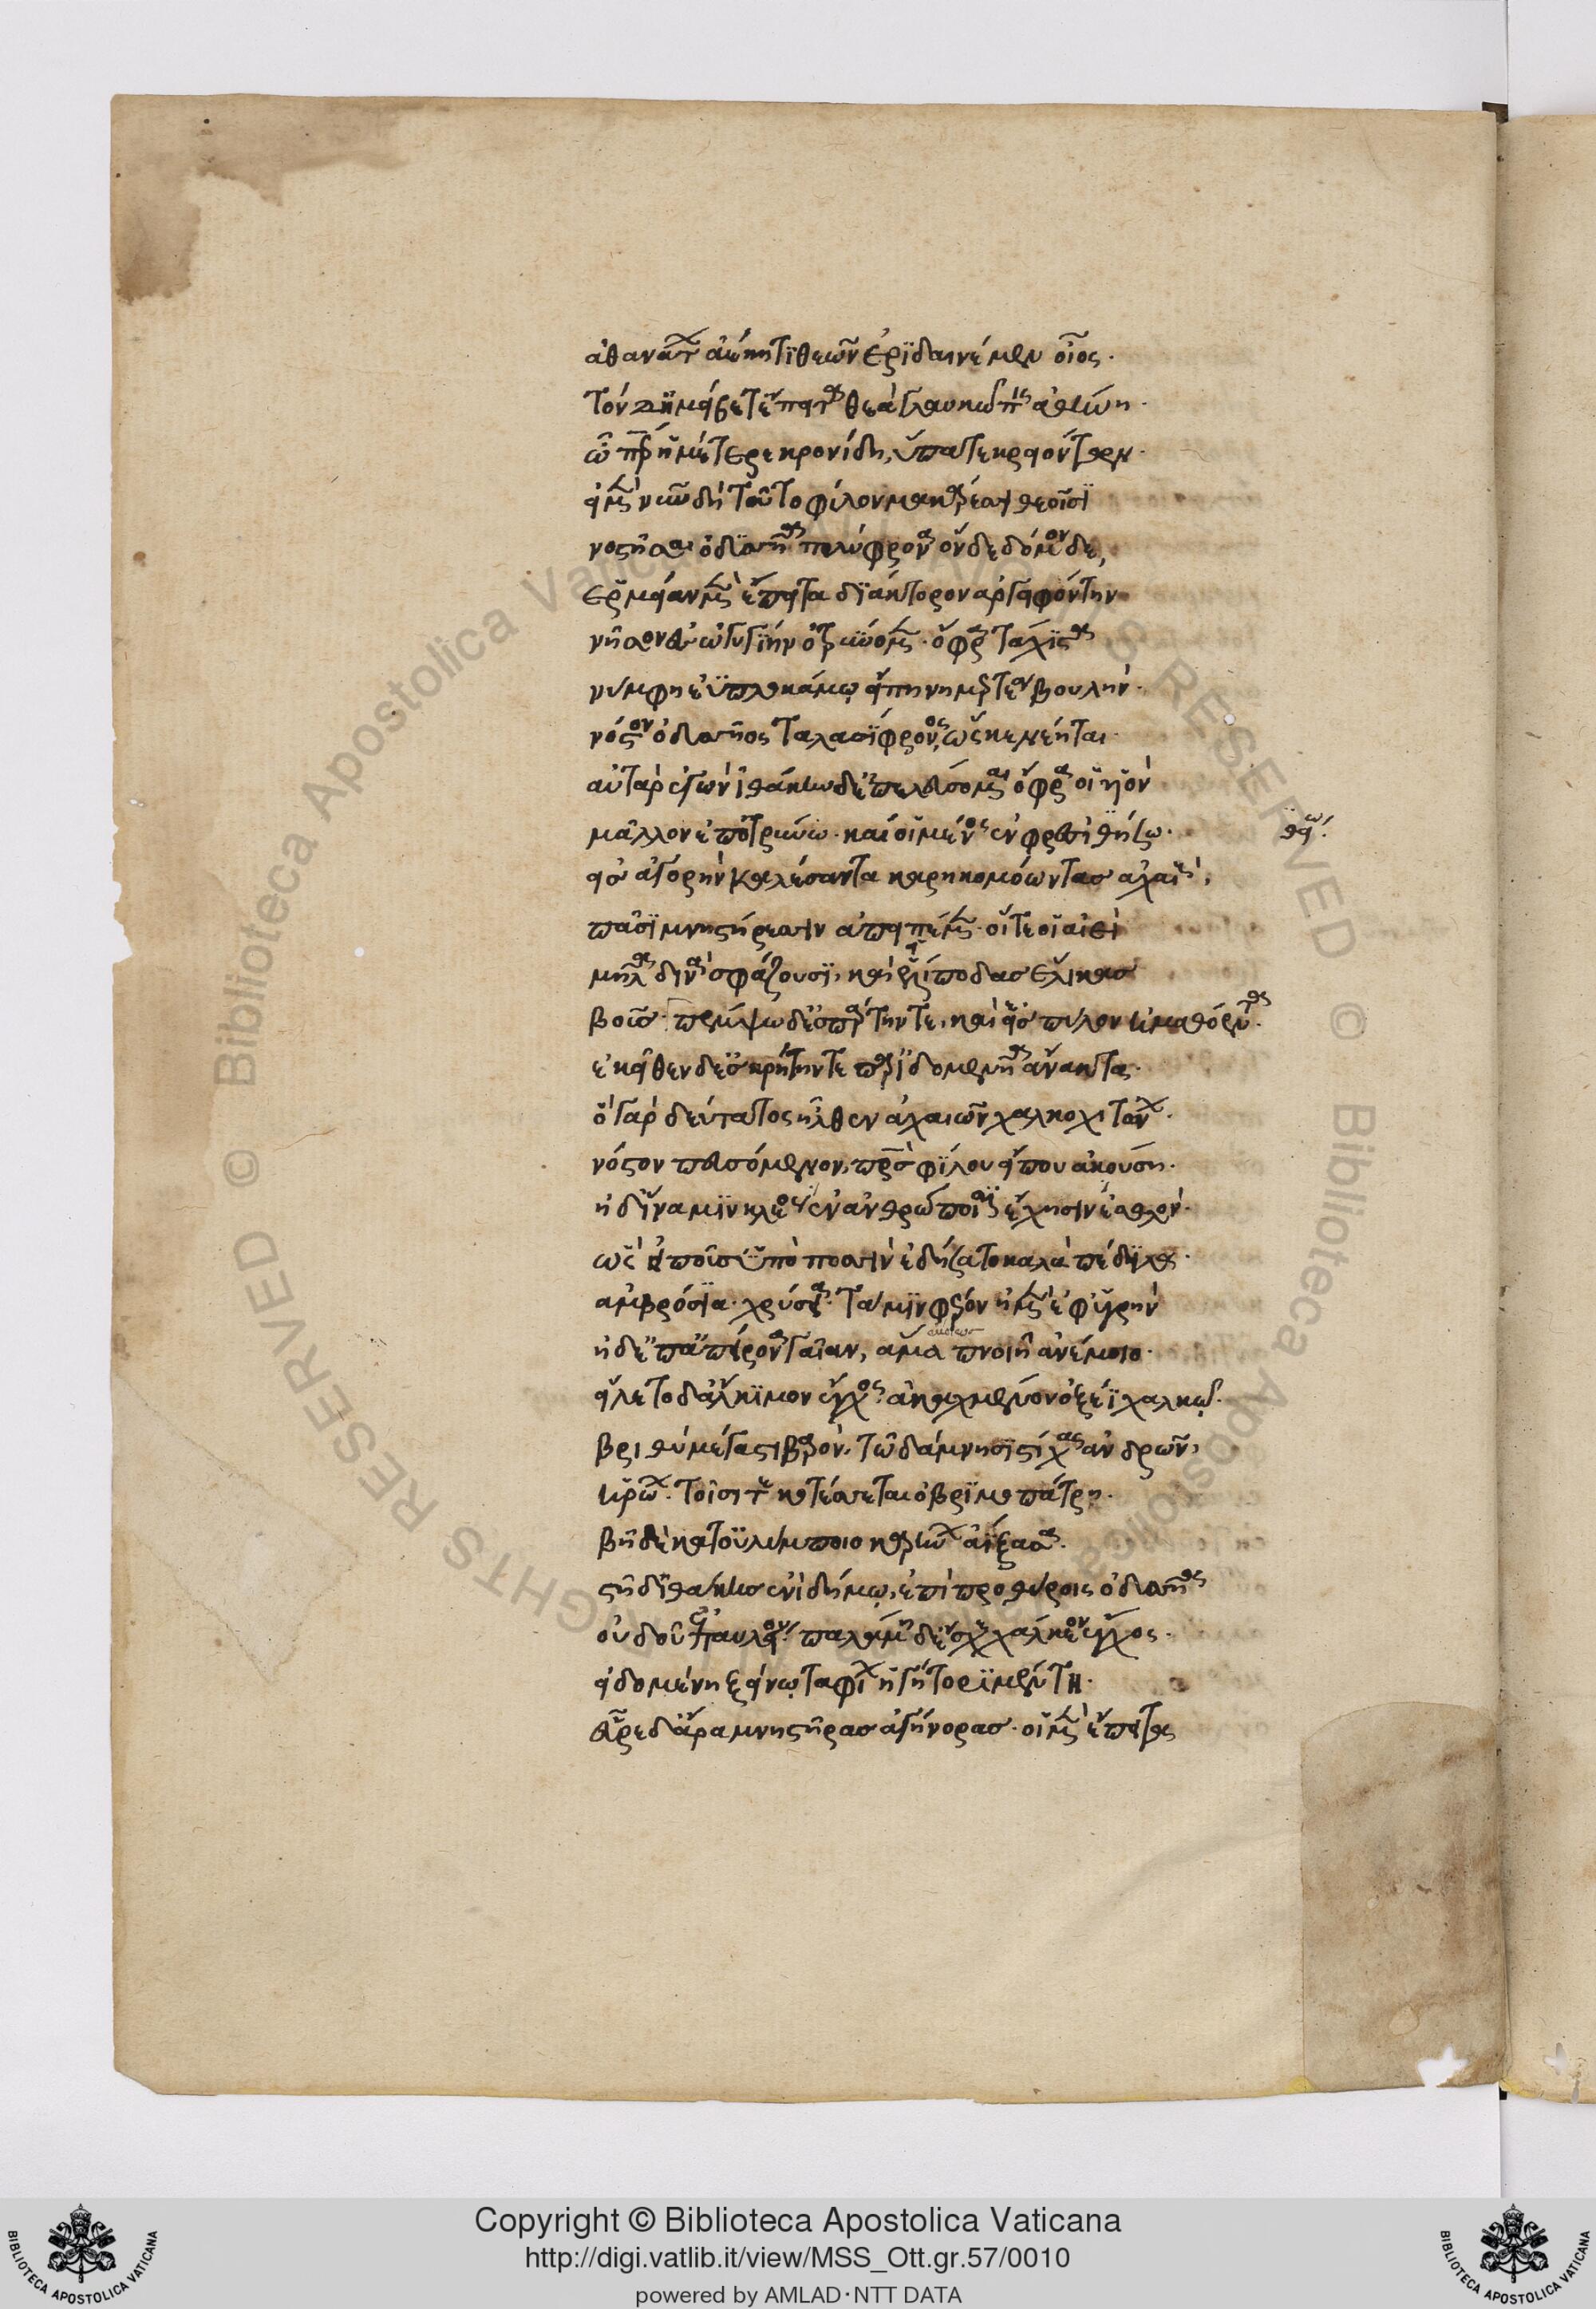 ἀθανάτων ἀέκητι θεῶν ἐριδαινέμεν οἶος.
τὸν δ' ἠμείβετ' ἔπειτα θεὰ γλαυκῶπις ἀθήνη.
ὦ πάτερ ἡμέτερε κρονίδη, ὕπατε κρειόντων.
εἰ μὲν νῦν δὴ τοῦτο φίλον μακάρεσσι θεοῖσι
νοστῆσαι ὀδυσῆα πολύφρονα ὅνδε δόμονδε,
ἑρμείαν μὲν ἔπειτα διάκτορον ἀργειφόντην
νῆσον ἐς ὠγυγίην ὀτρύνομεν. ὄφρα τάχιστα
νύμφη ἐϋπλοκάμῳ εἴπῃ νημερτέα βουλήν.
νόστον ὀδυσῆος ταλασίφρονος, ὥς κε νέηται.
αὐτὰρ ἐγὼν ἰθάκην δ' ἐπελεύσομαι ὄφρα οἱ υἱὸν
μᾶλλον ἐποτρύνω. καί οἱ μένος ἐν φρεσὶ θήσω.
εἰς ἀγορὴν καλέσαντα καρηκομόωντας ἀχαιούς,
πᾶσι μνηστήρεσσιν ἀπειπέμεν. οἵ τέ οἱ αἰεὶ
μῆλ' ἀδινὰ σφάζουσι, καὶ εἰλίποδας ἕλικας
βοῦς. πέμψω δ' ἐς σπάρτην τε, καὶ ἐς πύλον ἠμαθόεντα.
ἐκεῖθεν δ' ἐς κρήτην τε παρ' ἰδομενῆα ἄνακτα.
ὃ γὰρ δεύτατος ἦλθεν ἀχαιῶν χαλκοχιτώνων.
νόστον πευσόμενον, πατρὸς φίλου εἴπου ἀκούσῃ.
ἠδ' ἵνα μιν κλέος ἐν ἀνθρώποισιν ἔχησιν ἐσθλόν.
ὣς εἰποῦσ' ὑπὸ ποσσὶν ἐδήσατο καλὰ πέδιλα.
ἀμβρόσια. χρύσεια. τά μιν φέρον ἠμὲν ἐφ' ὑγρὴν
ἠδ' ἐπ' ἀπείρονα γαῖαν, ἅμα πνοιῇ ἀνέμοιο.
εἵλετο δ' ἄλκιμον ἔγχος. ἀκαχμένον ὀξέϊ χαλκῷ.
βριθὺ μέγα στιβαρόν. τῷ δάμνησι στίχας ἀνδρῶν,
ἡρώων. τοῖσί τε κοτέσσεται ὀβριμοπάτρη.
βῆ δὲ κατ' οὐλύμποιο καρήνων ἀΐξασα.
στῆ δ' ἰθάκης ἐνὶ δήμῳ, ἐπὶ προθύροις ὀδυσῆος
οὐδοῦ ἐπ' αὐλείου. παλάμῃ δ' ἔχε χάλκεον ἔγχος.
εἰδομένη ξείνῳ ταφίων ἡγήτορι μέντῃ.
εὗρε δ' ἄρα μνηστῆρας ἀγήνορας. οἱ μὲν ἔπειτα
Copyright © Biblioteca Apostolica Vaticana
http://digi.vatlib.it/view/MSS_Ott.gr.57/0010
powered by AMLAD·NTT DATA